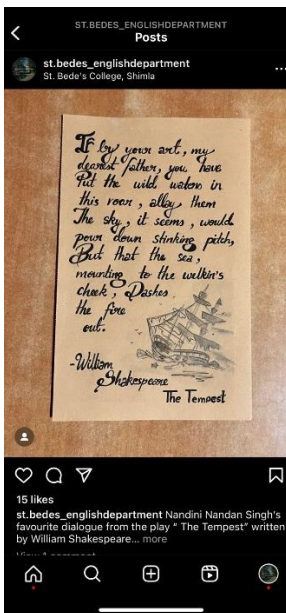 ST.BEDES_ENGLISHDEPARTMENT
Posts
st.bedes_englishdepartment
St. Bede's College, Shimla
If by your art, my
dearest father, you have
Put the wild waters in
this roar, allay them
The sky, it seems, would
pour down stinking pitch,
But that the sea,
mounting to the welkin's
cheek, Dashes
the fire
out.
-William
Shakespeare
The Tempest
15 likes
st.bedes_englishdepartment Nandini Nandan Singh's
favourite dialogue from the play " The Tempest" written
by William Shakespeare... more
View 1 comment